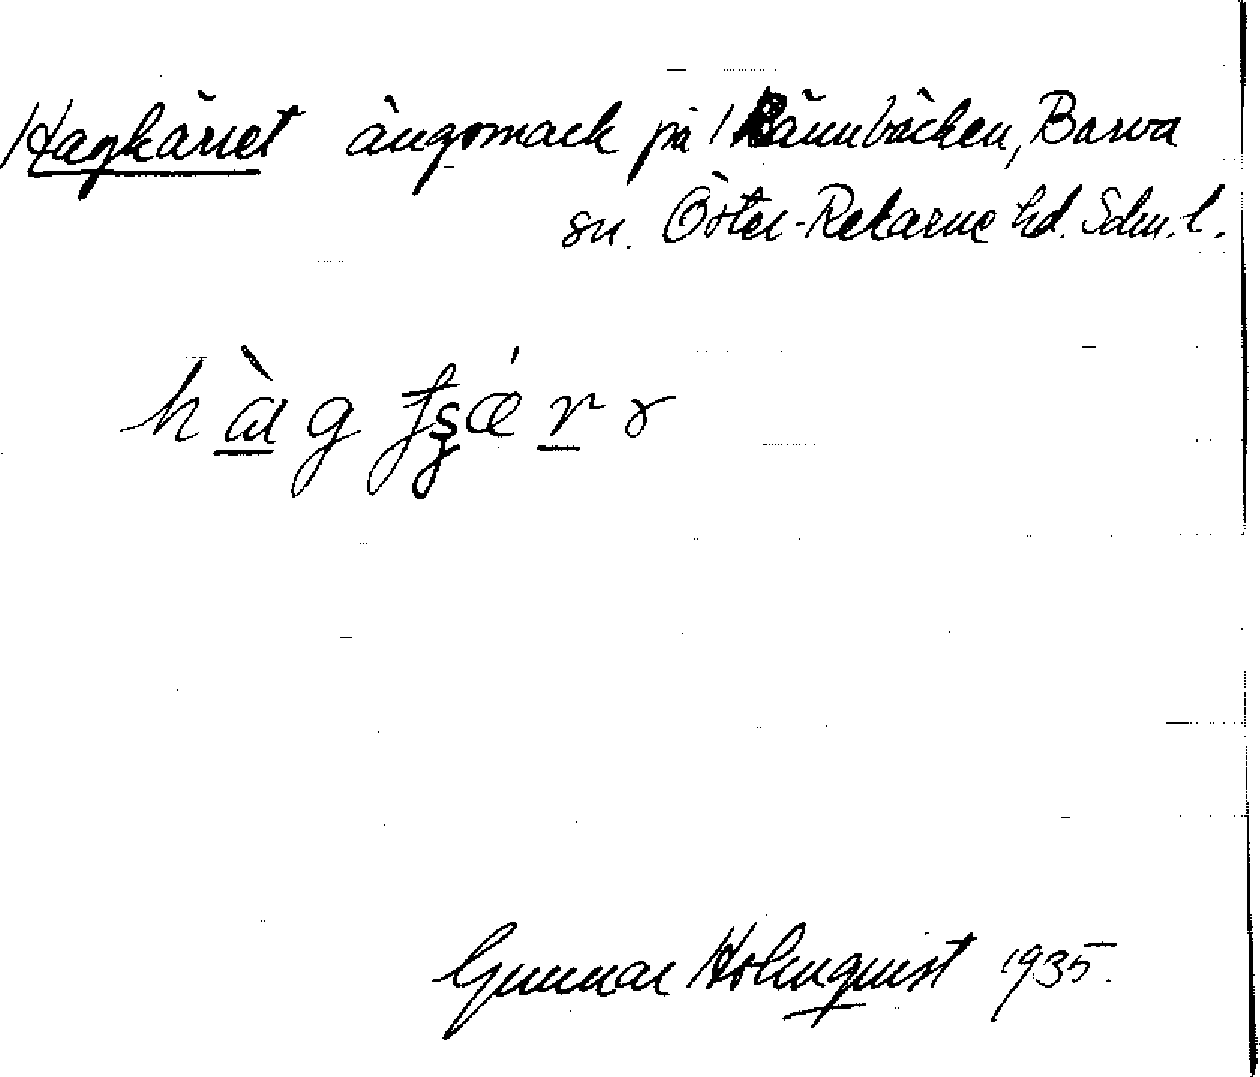 Hagkärret ängsmark på Rännbäcken, Barva
sn. Öster-Rekarne hd. Sdm. l.
Gunnar Holmquist 1935.